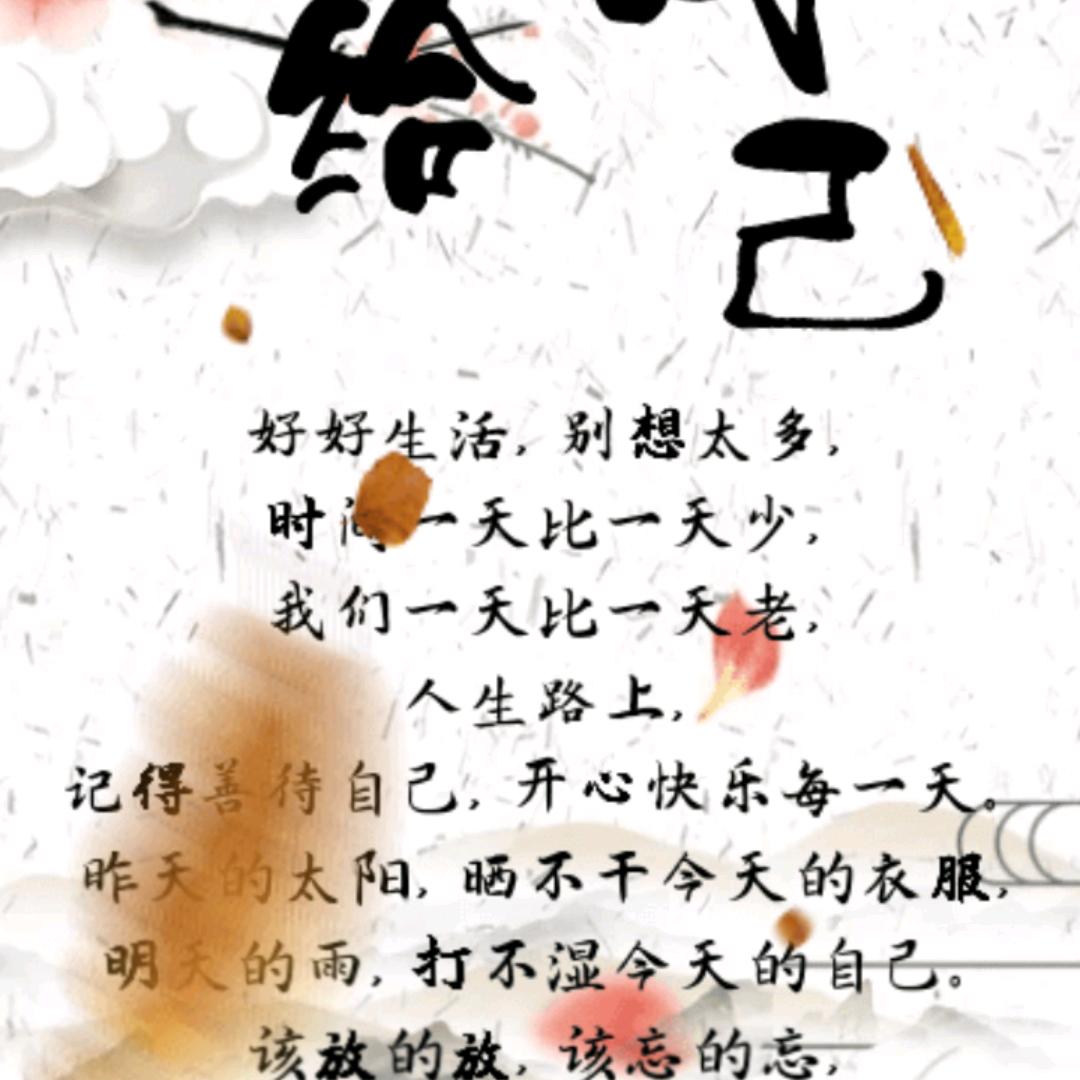 给
己
好好生活，别想太多，
时间一天比一天少，
我们一天比一天老，
人生路上，
记得善待自己，开心快乐每一天。
昨天的太阳，晒不干今天的衣服，
明天的雨，打不湿今天的自己。
该放的放，该忘的忘，